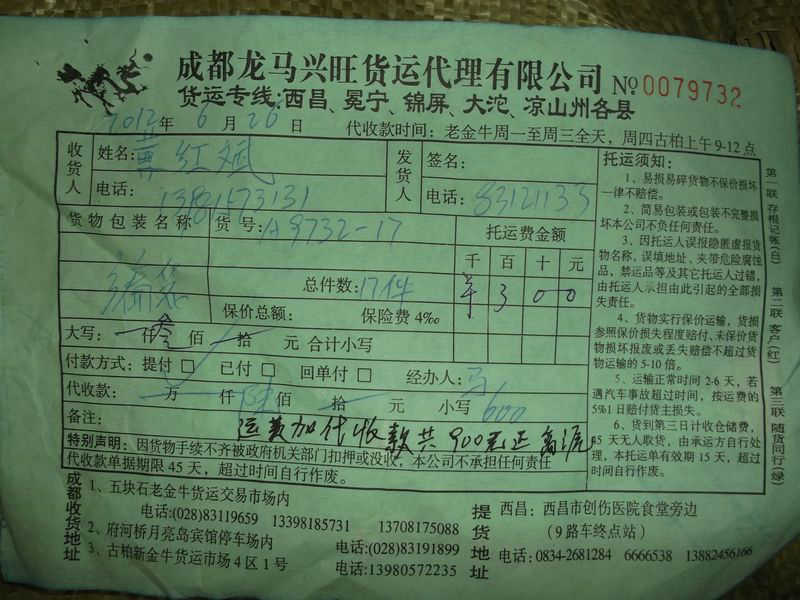 成都龙马兴旺货运代理有限公司 No 0079732
货运专线:西昌、冕宁、锦屏、大沱、凉山州各县
2012年6月26日 代收款时间：老金牛周一至周三全天，周四古柏上午9-12点
收货人 姓名: 红斌 发货人 签名:
电话: 电话: 83121133
货物包装名称 货号: A9732-17 托运费金额
千 百 十 元
总件数: 17件 3 0 0
保价总额: 保险费4‰
大写: 叁 佰 拾 元 合计小写
付款方式: 提付 □ 已付 □ 回单付 □ 经办人: 马
代收款: 万 仟 陆 佰 拾 元 小写 600
备注: 运费加代收款共900元正
特别声明: 因货物手续不齐被政府机关部门扣押或没收，本公司不承担任何责任
代收款单据期限45天，超过时间自行作废。
托运须知:
1、易损易碎货物不保价损坏
一律不赔偿。
2、简易包装或包装不完整损
坏本公司不负任何责任。
3、因托运人误报隐匿虚报货
物名称、误填地址、夹带危险腐蚀
品，禁运品等及其它托运人过错，
由托运人承担由此引起的全部损
失责任。
4、货物实行保价运输，货损
参照保价损失程度赔付、未保价货
物损坏报废或丢失赔偿不超过货
物运输的5-10倍。
5、运输正常时间2-6天，若
遇汽车事故超过时间，按运费的
5%1日赔付货主损失。
6、货到第三日计收仓储费，
45天无人取货，由承运方自行处
理，本托运单有效期15天，超过
时间自行作废。
第一联 存根记账(白) 第二联 客户(红) 第三联 随货同行(绿)
成都收货地址
1、五块石老金牛货运交易市场内
电话:(028)83119659 13398185731 13708175088
2、府河桥月亮岛宾馆停车场内
电话:(028)83191899
3、古柏新金牛货运市场4区1号
电话:13980572235
提货地址
西昌：西昌市创伤医院食堂旁边
（9路车终点站）
电话: 0834-2681284 6666538 13882456166